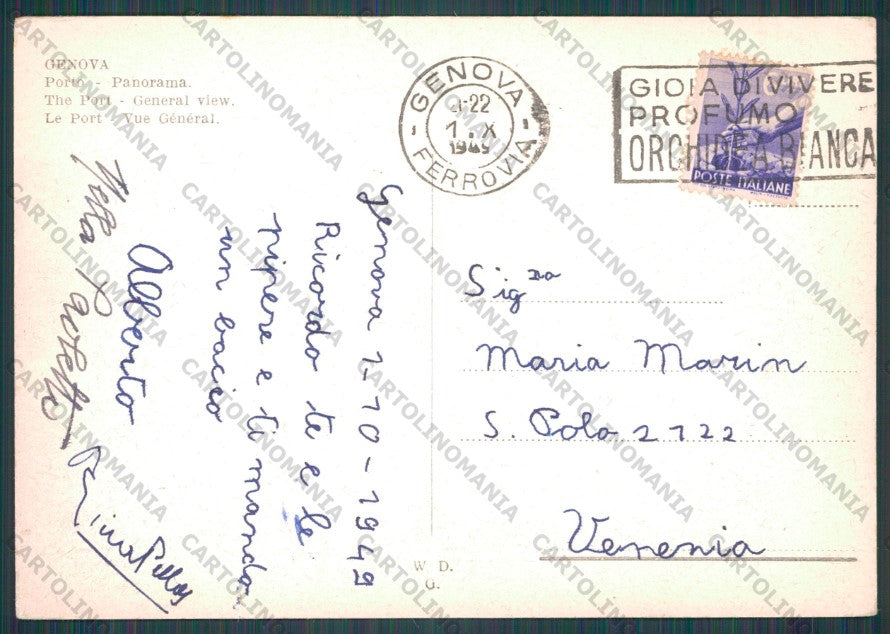 GENOVA
Porto - Panorama.
The Port - General view.
Le Port - Vue Général.
GENOVA
21-22
1.X
1949
FERROVIA
GIOIA DI VIVERE
PROFUMO
ORCHIDEA BIANCA
POSTE ITALIANE
Genova 1-10-1949
Ricordo te e le
pipere e ti mando
un bacio
Alberto
Sig.na
Maria Marin
S. Polo 2122
Venenia
W D.
G.
CARTOLINOMANIA